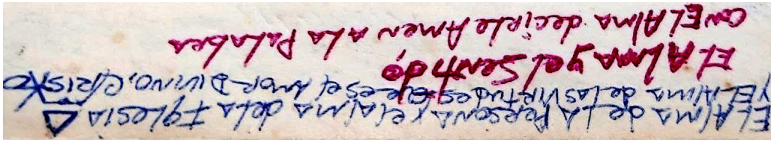 EL Alma de LA Persona y el alma de la Iglesia
y EL Alma de las Virtudes que es el Amor Divino, Cristo
EL Alma y el Sentido,
con El Alma decirle Amen a La Palabra